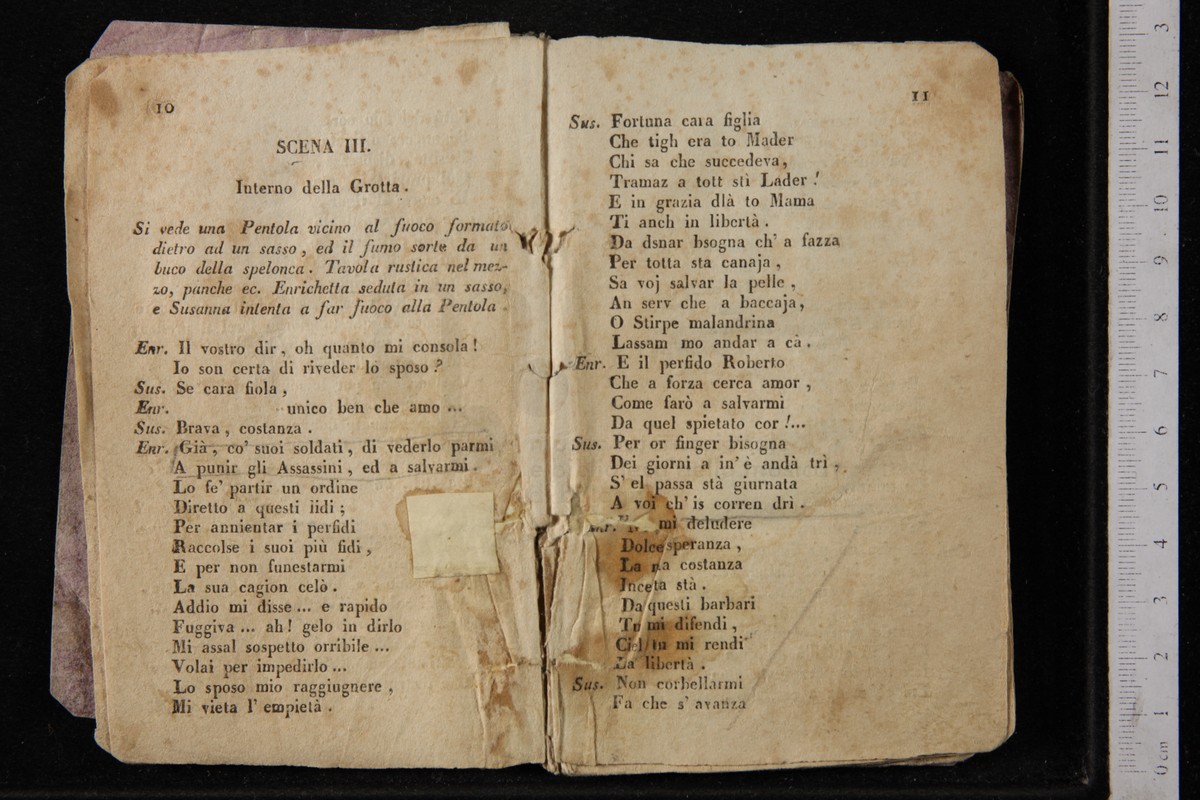 10
SCENA III.
Interno della Grotta.
Si vede una Pentola vicino al fuoco formato
dietro ad un sasso, ed il fumo sorte da un
buco della spelonca. Tavola rustica nel mez-
zo, panche ec. Enrichetta seduta in un sasso,
e Susanna intenta a far fuoco alla Pentola.
Enr. Il vostro dir, oh quanto mi consola!
Io son certa di riveder lo sposo?
Sus. Se cara fiola,
Enr. unico ben che amo ...
Sus. Brava, costanza.
Enr. Già, co' suoi soldati, di vederlo parmi
A punir gli Assassini, ed a salvarmi.
Lo fe' partir un ordine
Diretto a questi iidi;
Per annientar i perfidi
Raccolse i suoi più fidi,
E per non funestarmi
La sua cagion celò.
Addio mi disse ... e rapido
Fuggiva ... ah! gelo in dirlo
Mi assal sospetto orribile ...
Volai per impedirlo ...
Lo sposo mio raggiugnere,
Mi vieta l' empietà.
11
Sus. Fortuna cara figlia
Che tigh era to Mader
Chi sa che succedeva,
Tramaz a tott stì Lader!
E in grazia dlà to Mama
Ti anch in libertà.
Da dsnar bsogna ch' a fazza
Per totta sta canaja,
Sa voj salvar la pelle,
An serv che a baccaja,
O Stirpe malandrina
Lassam mo andar a cà.
Enr. E il perfido Roberto
Che a forza cerca amor,
Come farò a salvarmi
Da quel spietato cor!...
Sus. Per or finger bisogna
Dei giorni a in' è andà trì,
S' el passa stà giurnata
A voi ch' is corren drì.
Enr. mi deludere
Dolce speranza,
La costanza
stà.
Da questi barbari
Tu mi difendi,
Ciel tu mi rendi
La libertà.
Sus. Non corbellarmi
Fa che s' avanza
0 cm 1 2 3 4 5 6 7 8 9 10 11 12 3